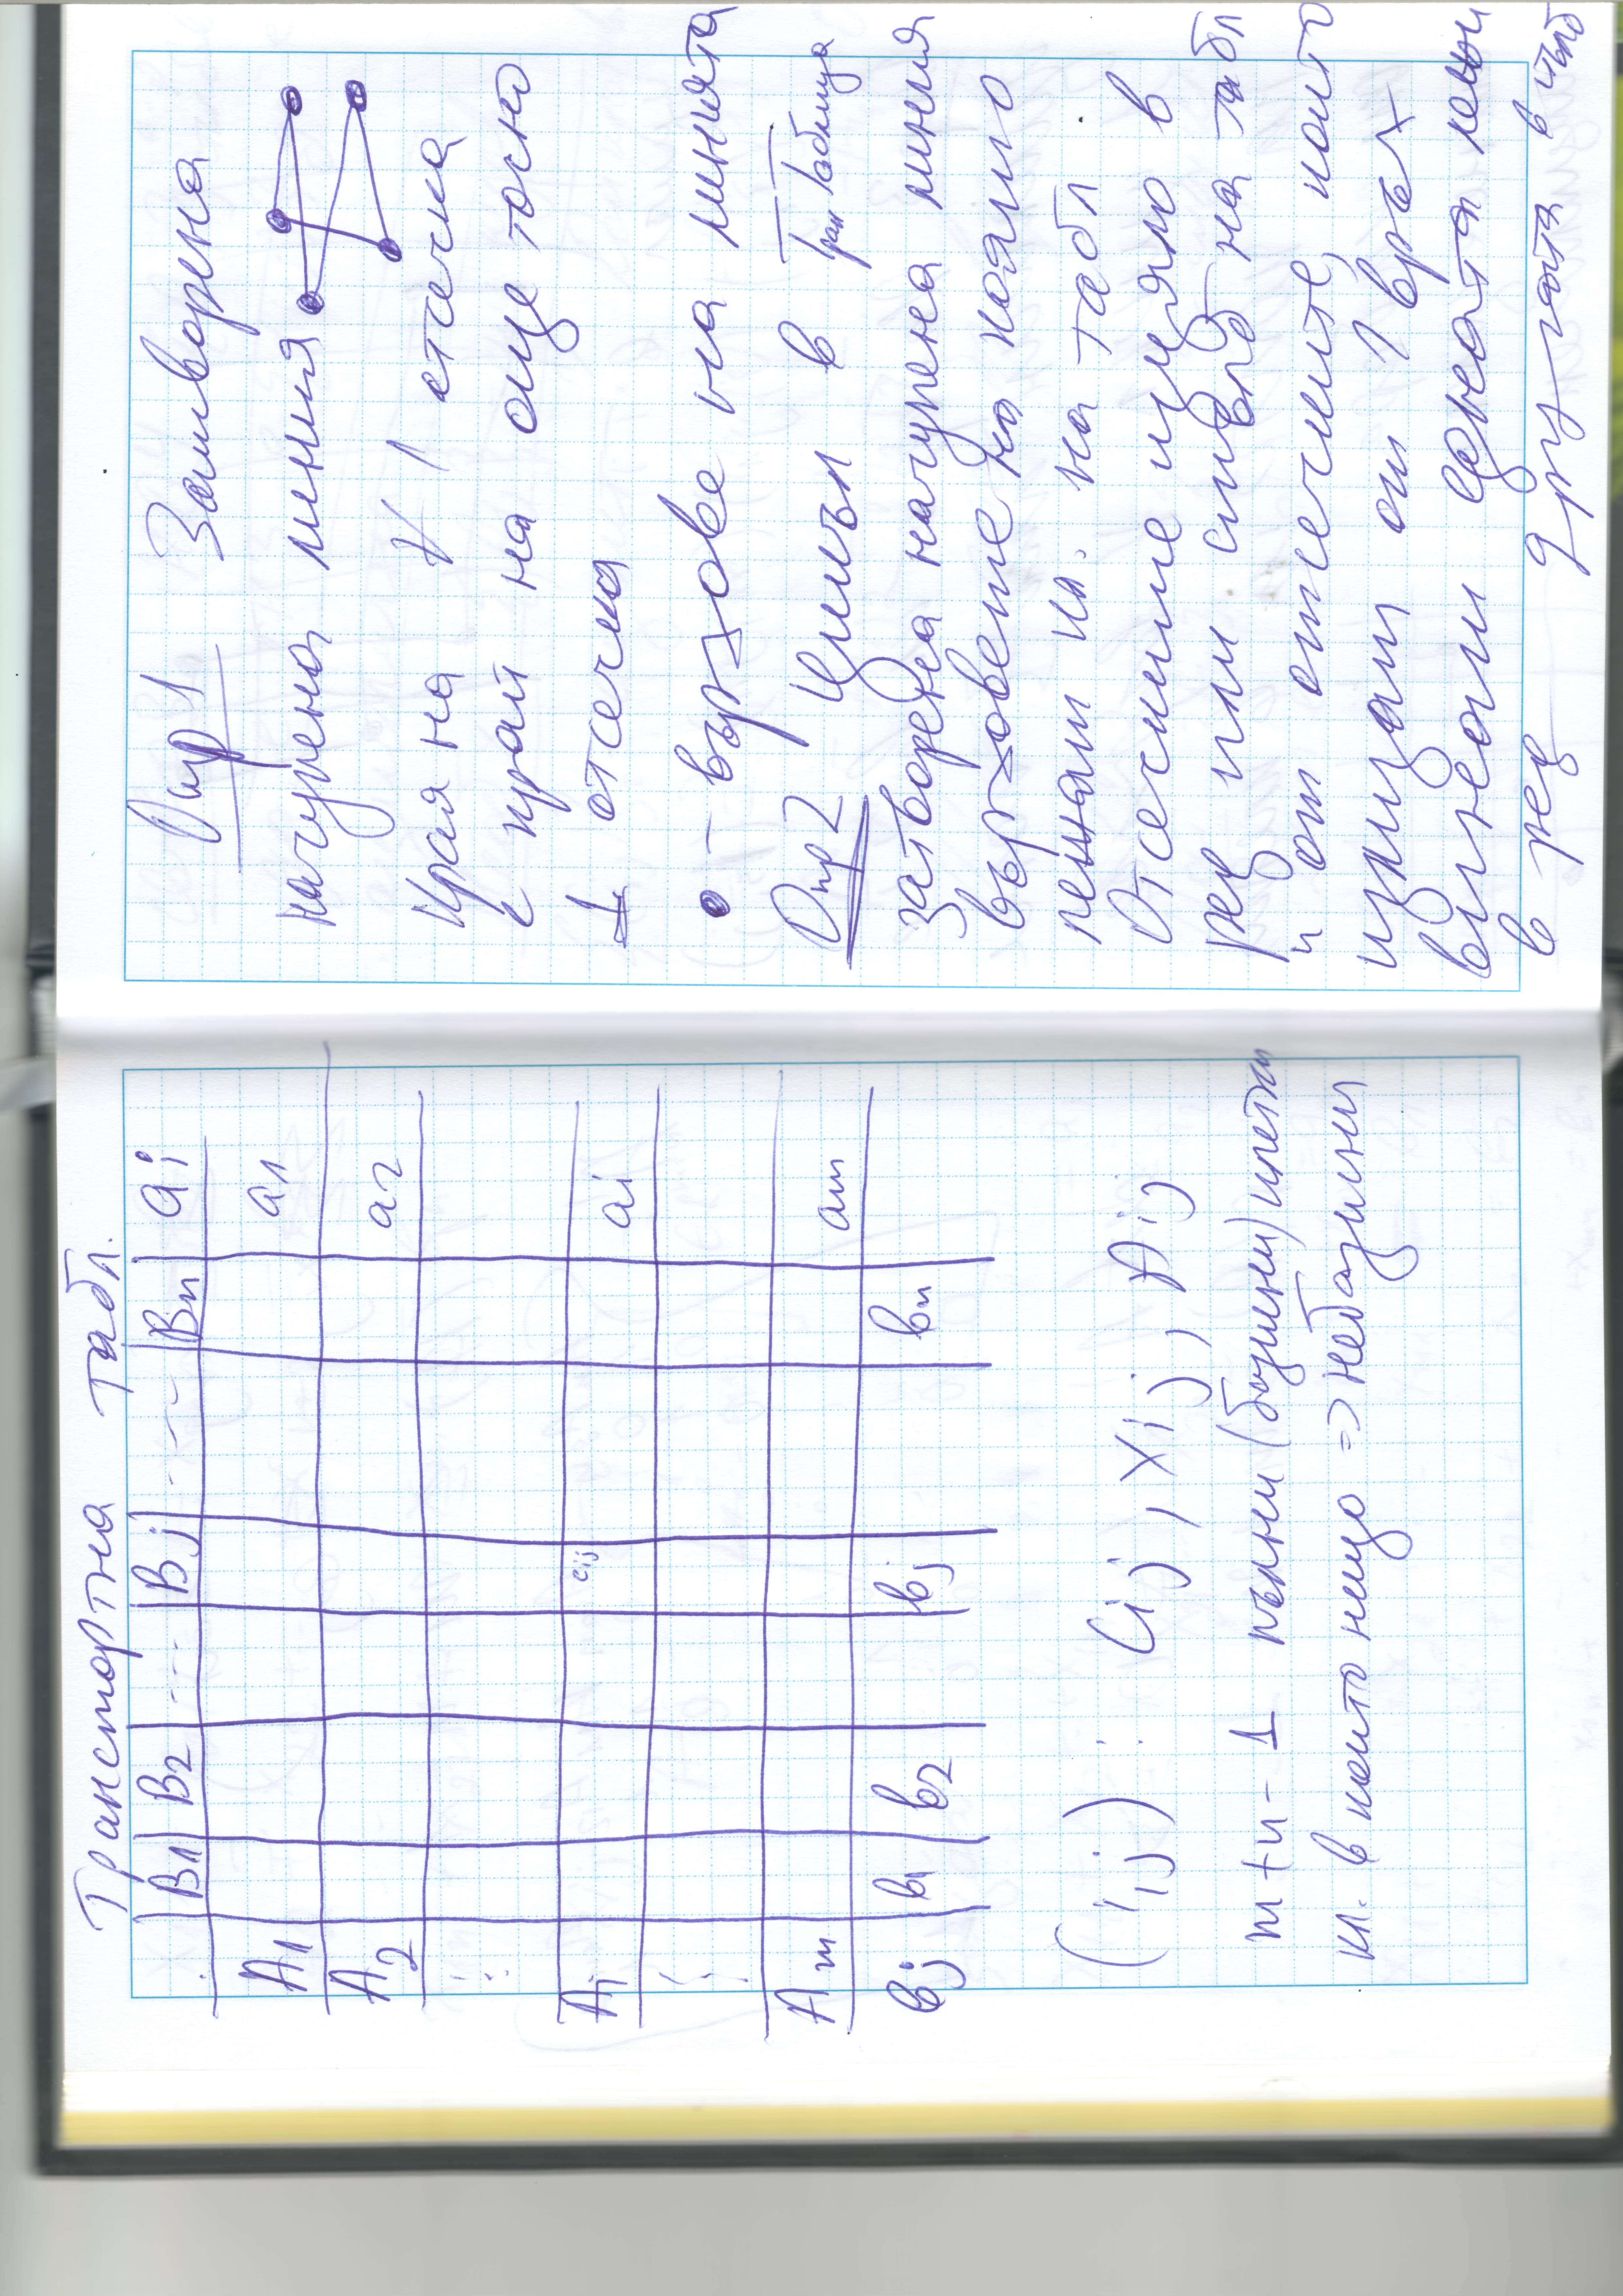 Транспортна табл.
B1 B2 --- Bj --- Bn ai
A1 a1
A2 a2
⋮
Ai cij ai
⋮
Am am
bj b1 b2 bj bn ai
(i,j) : Cij, Xij, Aij
m+n-1 пълни (базисни) клетки
кл. в които нищо => небазисни
Опр1 Затворена
начупена линия
Края на ∀ 1 отсечка
е край на още точно
1 отсечка
• - върхове на линията
Опр2 Цикъл в Тран Таблица
затворена начупена линия
върховете на която
лежат кл. на табл.
Отсечките изцяло в
ред или стълб на табл
и от отсечките, които
излизат от 1 връх
винаги едната лежи
в ред другата в стлб